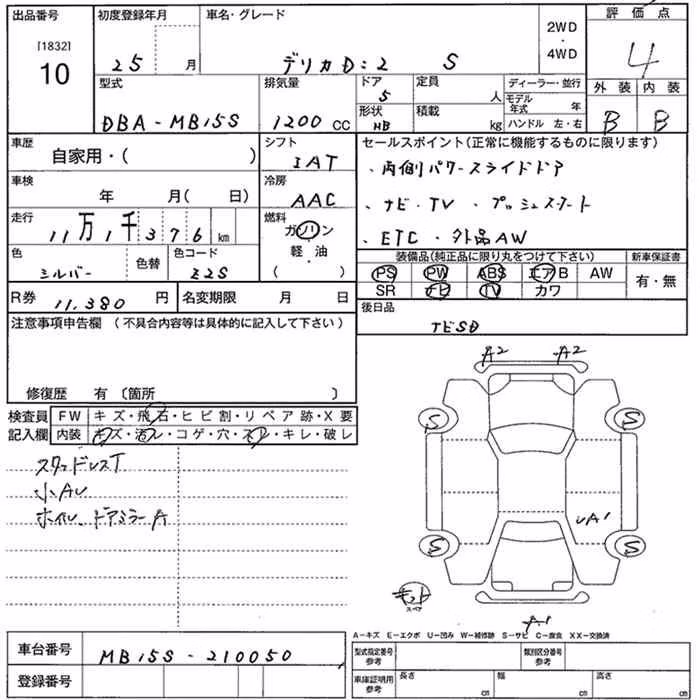 出品番号
[1832]
10
初度登録年月
25 月
車名・グレード
デリカD:2 S
2WD
・
4WD
評価点
4
外装 内装
B B
型式
DBA-MB15S
排気量
1200 CC
ドア
5
形状
HB
定員
人
積載
kg
ディーラー・並行
モデル年式 年
ハンドル 左・右
車歴
自家用・( )
シフト
IAT
車検
年 月( 日)
冷房
AAC
走行
11万1千376 km
燃料
ガソリン
・
軽・油
( )
色
シルバー
色替
色コード
Z2S
R券 11,380 円
名変期限 月 日
セールスポイント(正常に機能するものに限ります)
・両側パワースライドドア
・ナビ・TV・プッシュスタート
・ETC・外品AW
装備品(純正品に限り丸をつけて下さい)
PS PW ABS エアB AW
SR ナビ TV カワ
新車保証書
有・無
後日品
ナビSD
注意事項申告欄(不具合内容等は具体的に記入して下さい)
修復歴 有〔箇所 〕
検査員
記入欄
FW キズ・飛石・ヒビ割・リペア跡・X要
内装 キズ・汚レ・コゲ・穴・スレ・キレ・破レ
スタッドレスT
小AU
ホイル、ドアミラーA
A2 A2
S S
UA1
S S
キット
スペア
A1
A-キズ E-エクボ U-凹み W-補修跡 S-サビ C-腐食 XX-交換済
車台番号 MB15S-210050
登録番号
型式指定番号
参考
類別区分番号
参考
車庫証明用
参考
長さ cm
幅 cm
高さ cm